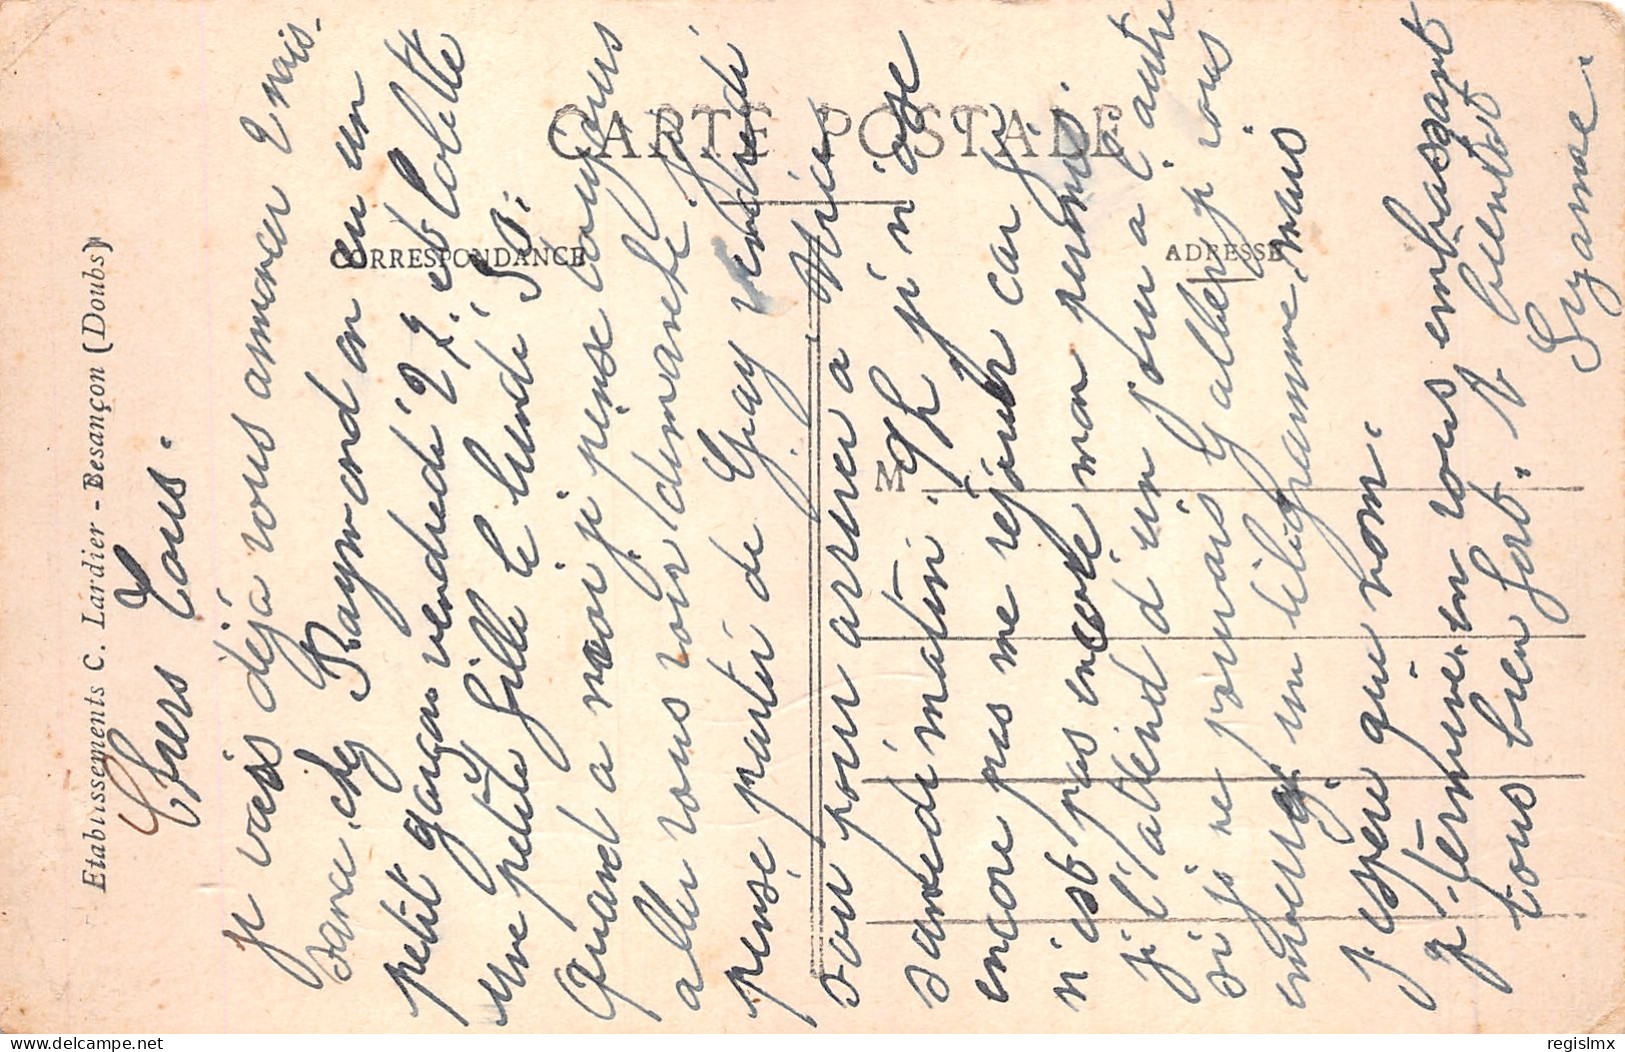 CARTE POSTALE
CORRESPONDANCE
ADRESSE
M
Etablissements C. Lardier - Besançon (Doubs)
Chers Tous.
Je vais déjà vous annoncer 2 nais-
sance, chez Raymond on eu un
petit garçon vendredi 22. et Colette
une petite fille le lundi
Quand a moi je pense toujours
aller vous voir dimanche je
pense partir de Gray vendredi
soir pour arriver a
samedi matin. 9h je n'ose
encore pas me réjouir car je
n'est pas encore mon permis.
je l'attend d'un jour a l'autre
si je ne pouvais y aller je vous
enverrai un télégramme, mais
j'espère que non.
je termine en vous embrassant
tous bien fort. A bientôt
Suzanne.
regislmx